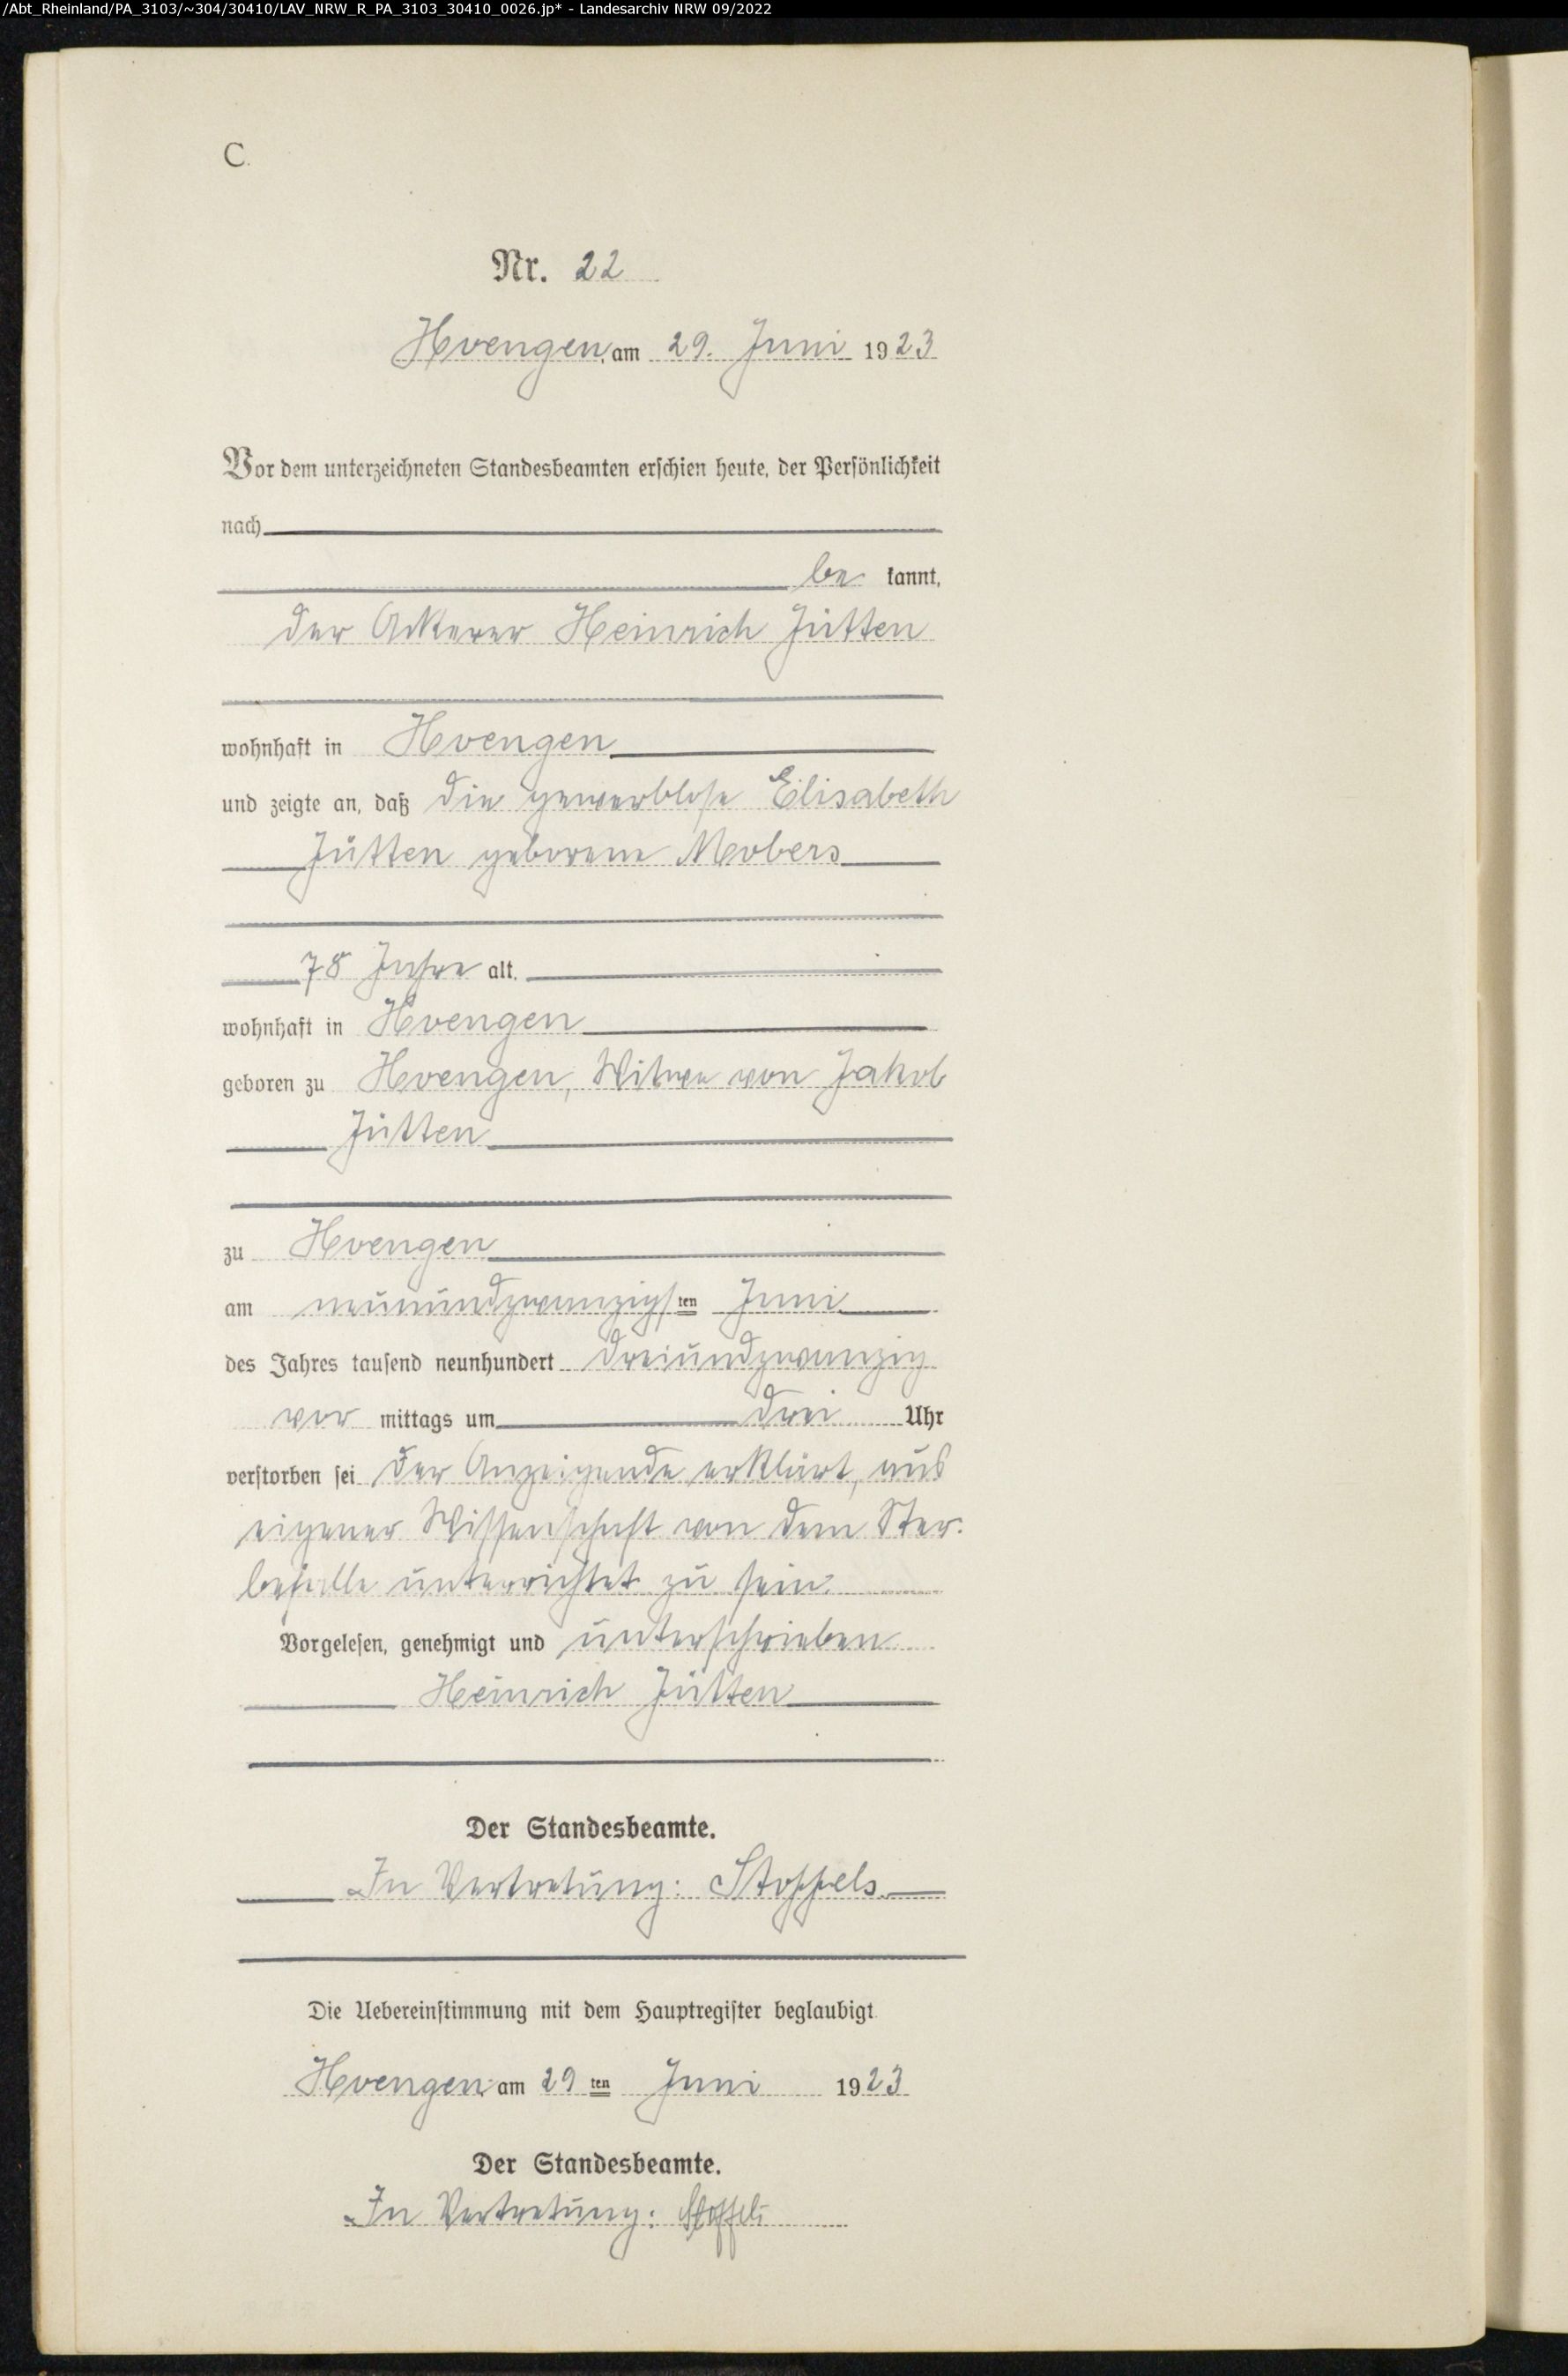 /Abt_Rheinland/PA_3103/~304/30410/LAV_NRW_R_PA_3103_30410_0026.jp* - Landesarchiv NRW 09/2022
C.
Nr. 22
Hoengen, am 29. Juni 1923
Vor dem unterzeichneten Standesbeamten erschien heute, der Persönlichkeit
nach
be kannt,
der Ackerer Heinrich Jütten
wohnhaft in Hoengen
und zeigte an, daß die gewerblose Elisabeth
Jütten geborene Mobers
78 Jahre alt,
wohnhaft in Hoengen
geboren zu Hoengen, Witwe von Jakob
Jütten
zu Hoengen
am neunundzwanzigsten Juni
des Jahres tausend neunhundert dreiundzwanzig
vor mittags um drei Uhr
verstorben sei Der Anzeigende erklärt, aus
eigener Wissenschaft von dem Ster-
befalle unterrichtet zu sein.
Vorgelesen, genehmigt und unterschrieben
Heinrich Jütten
Der Standesbeamte.
In Vertretung: Stoffels
Die Uebereinstimmung mit dem Hauptregister beglaubigt
Hoengen am 29 ten Juni 1923
Der Standesbeamte.
In Vertretung: Stoffels